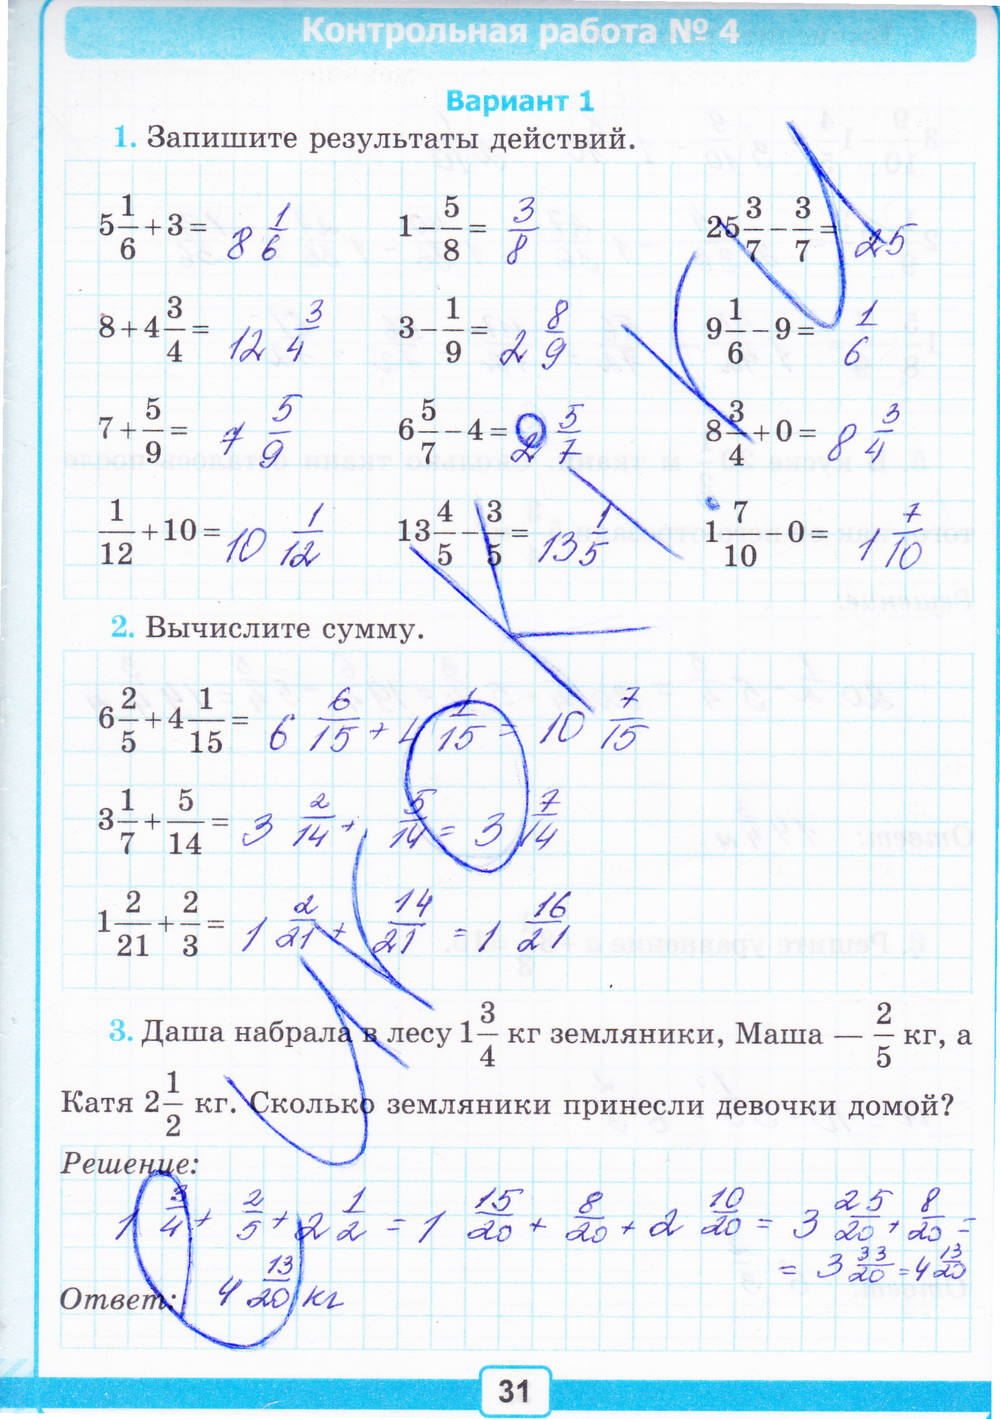 Контрольная работа № 4
Вариант 1
1. Запишите результаты действий.
5 1/6 + 3 = 8 1/6    1 − 5/8 = 3/8    25 3/7 − 3/7 = 25
8 + 4 3/4 = 12 3/4    3 − 1/9 = 2 8/9    9 1/6 − 9 = 1/6
7 + 5/9 = 7 5/9    6 5/7 − 4 = 2 5/7    8 3/4 + 0 = 8 3/4
1/12 + 10 = 10 1/12    13 4/5 − 3/5 = 13 1/5    1 7/10 − 0 = 1 7/10
2. Вычислите сумму.
6 2/5 + 4 1/15 = 6 6/15 + 4 1/15 = 10 7/15
3 1/7 + 5/14 = 3 2/14 + 5/14 = 3 7/14
1 2/21 + 2/3 = 1 2/21 + 14/21 = 1 16/21
3. Даша набрала в лесу 1 3/4 кг земляники, Маша — 2/5 кг, а
Катя 2 1/2 кг. Сколько земляники принесли девочки домой?
Решение:
1 3/4 + 2/5 + 2 1/2 = 1 15/20 + 8/20 + 2 10/20 = 3 25/20 + 8/20 =
= 3 33/20 = 4 13/20
Ответ: 4 13/20 кг
31